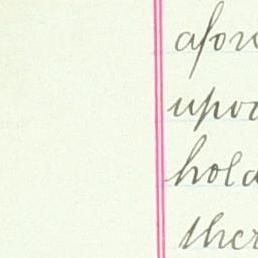 afore
upo
hold
ther